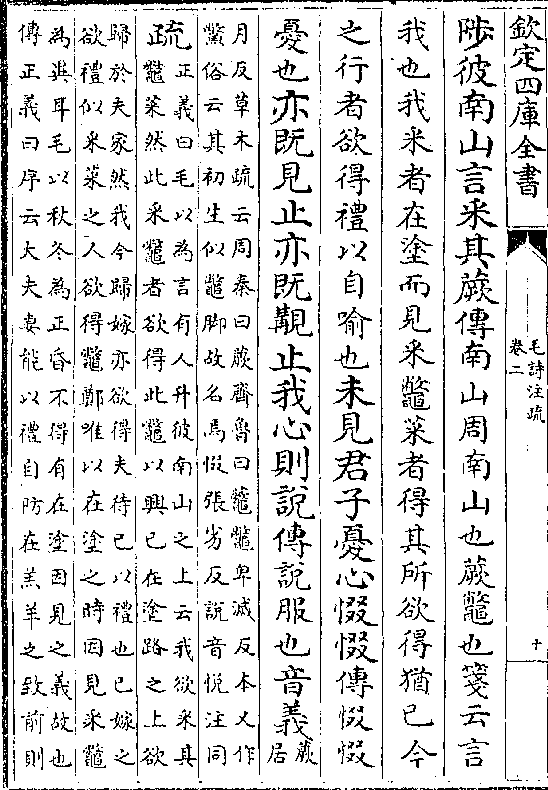 欽定四庫全書
毛詩注疏
卷二
十
陟彼南山言采其蕨傳南山周南山也蕨鼈也箋云言
我也我采者在塗而見采鼈菜者得其所欲得猶已今
之行者欲得禮以自喻也未見君子憂心惙惙傳惙惙
憂也亦既見止亦既覯止我心則說傳說服也音義蕨居
月反草木疏云周秦曰蕨齊魯曰虌鼈卑滅反本又作
虌俗云其初生似鼈脚故名焉惙張劣反說音悅注同
疏正義曰毛以為言有人升彼南山之上云我欲采其
鼈菜然此采鼈者欲得此鼈以興已在塗路之上欲
歸於夫家然我今歸嫁亦欲得夫待已以禮也已嫁之
欲禮似采菜之人欲得鼈鄭唯以在塗之時因見采鼈
為異耳毛以秋冬為正昏不得有在塗因見之義故也
傳正義曰序云大夫妻能以禮自防在羔羊之致前則